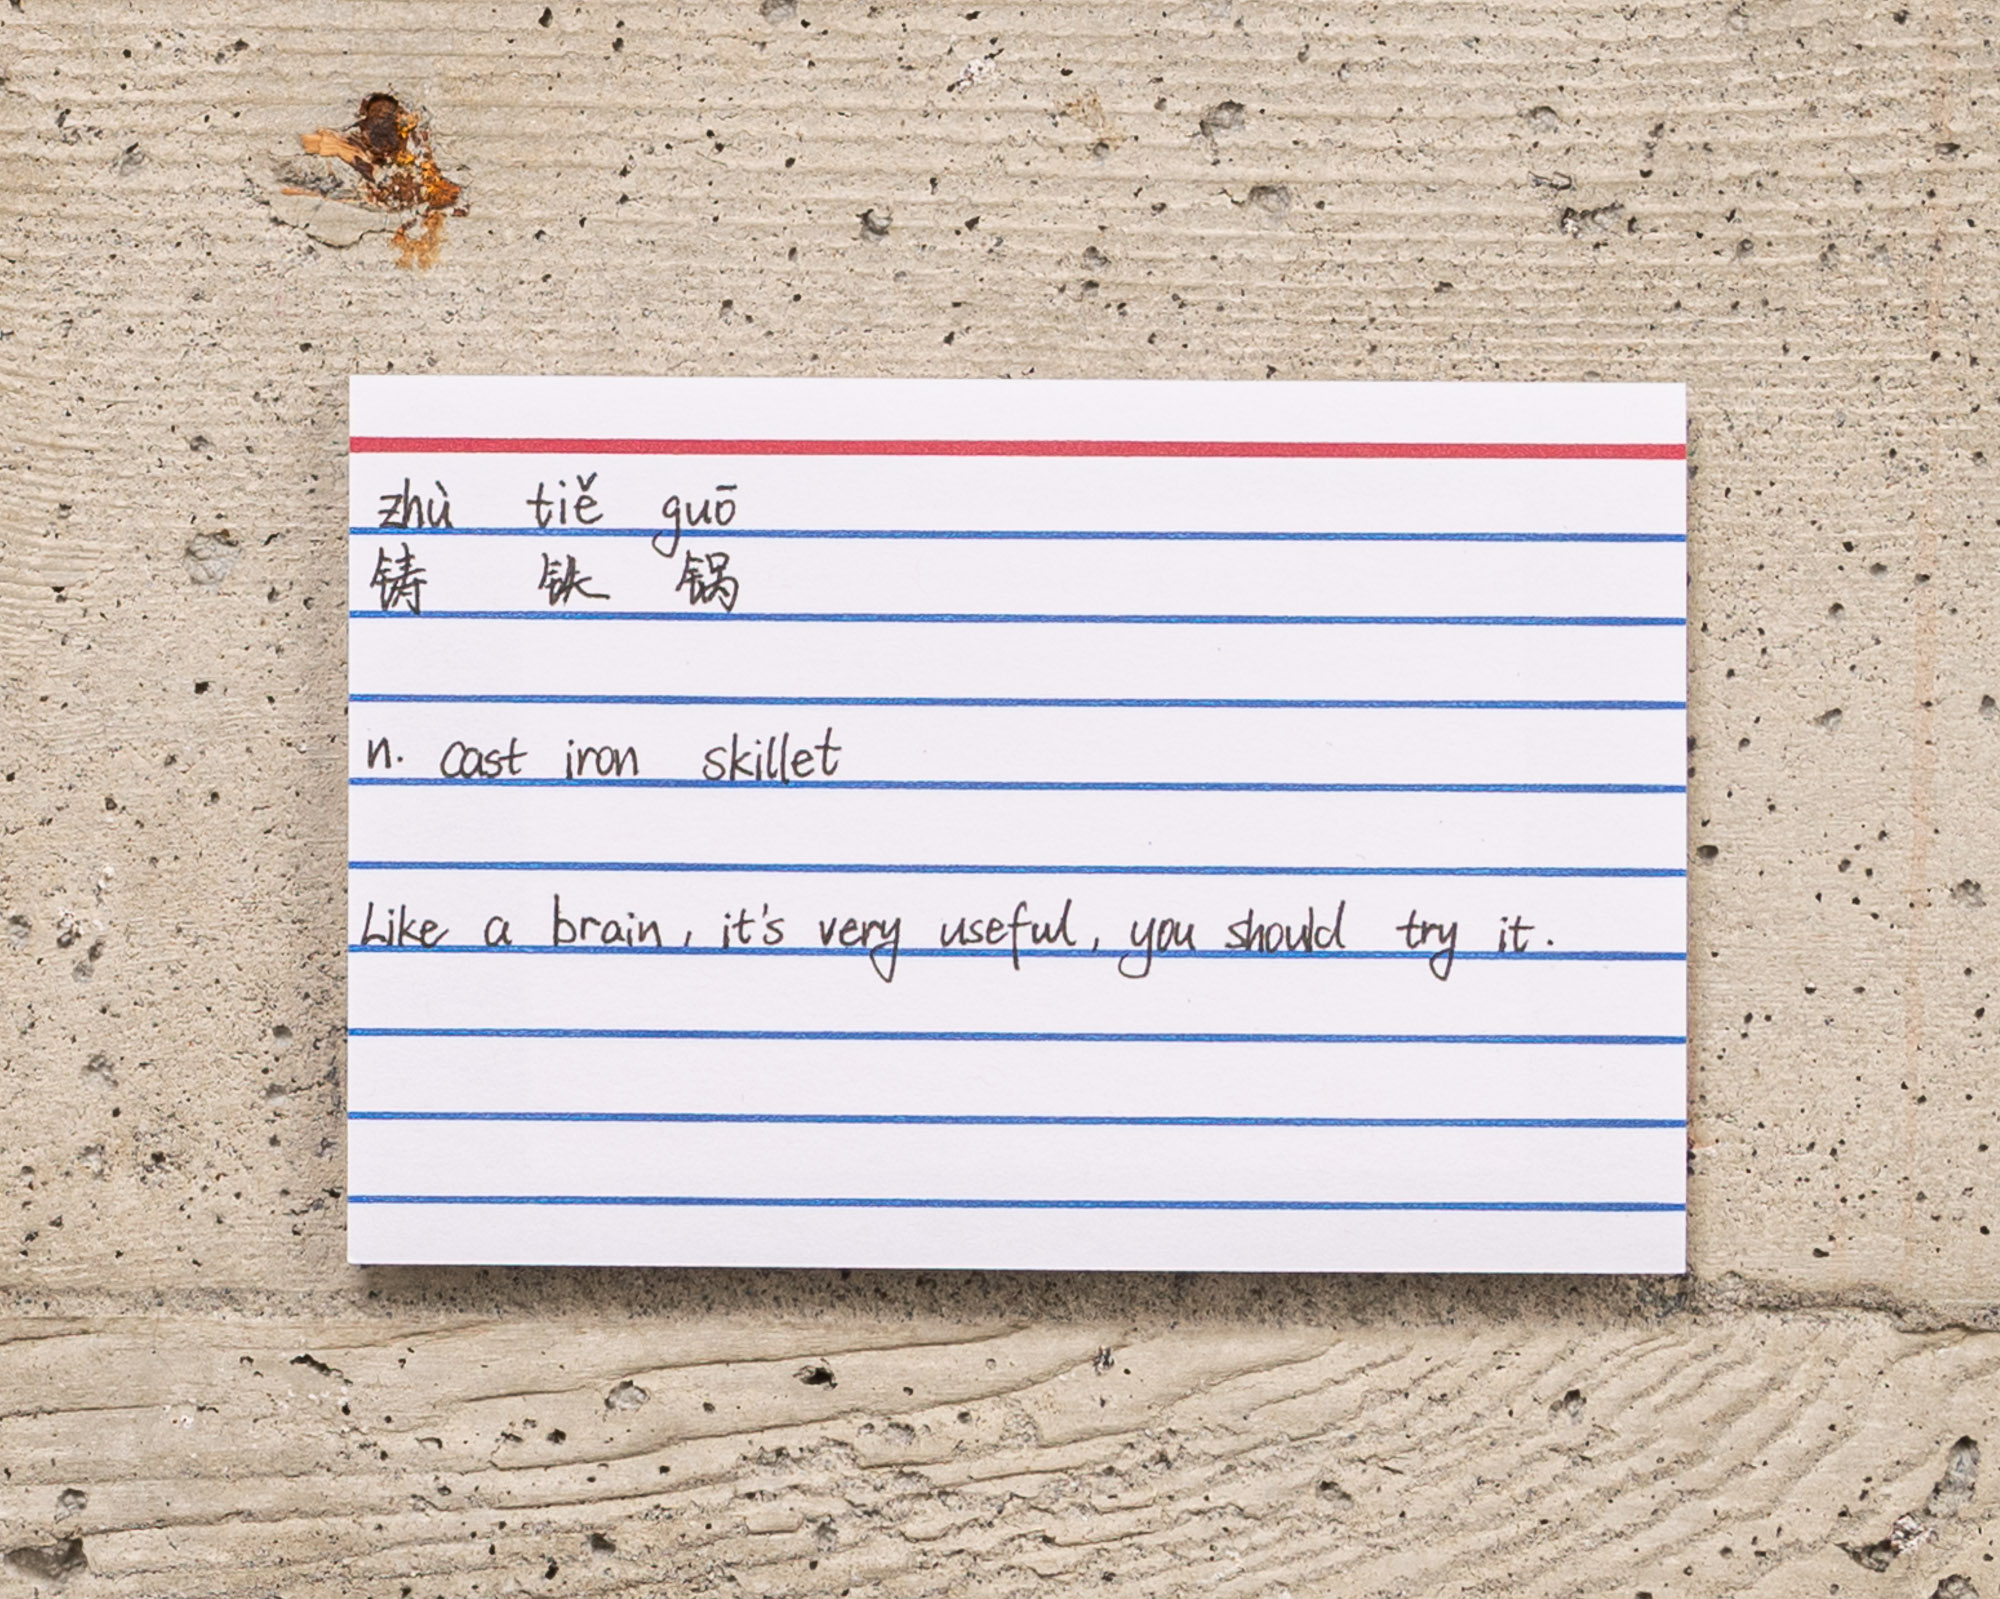 zhù tiě guō
铸 铁 锅
n. cast iron skillet
Like a brain, it's very useful, you should try it.